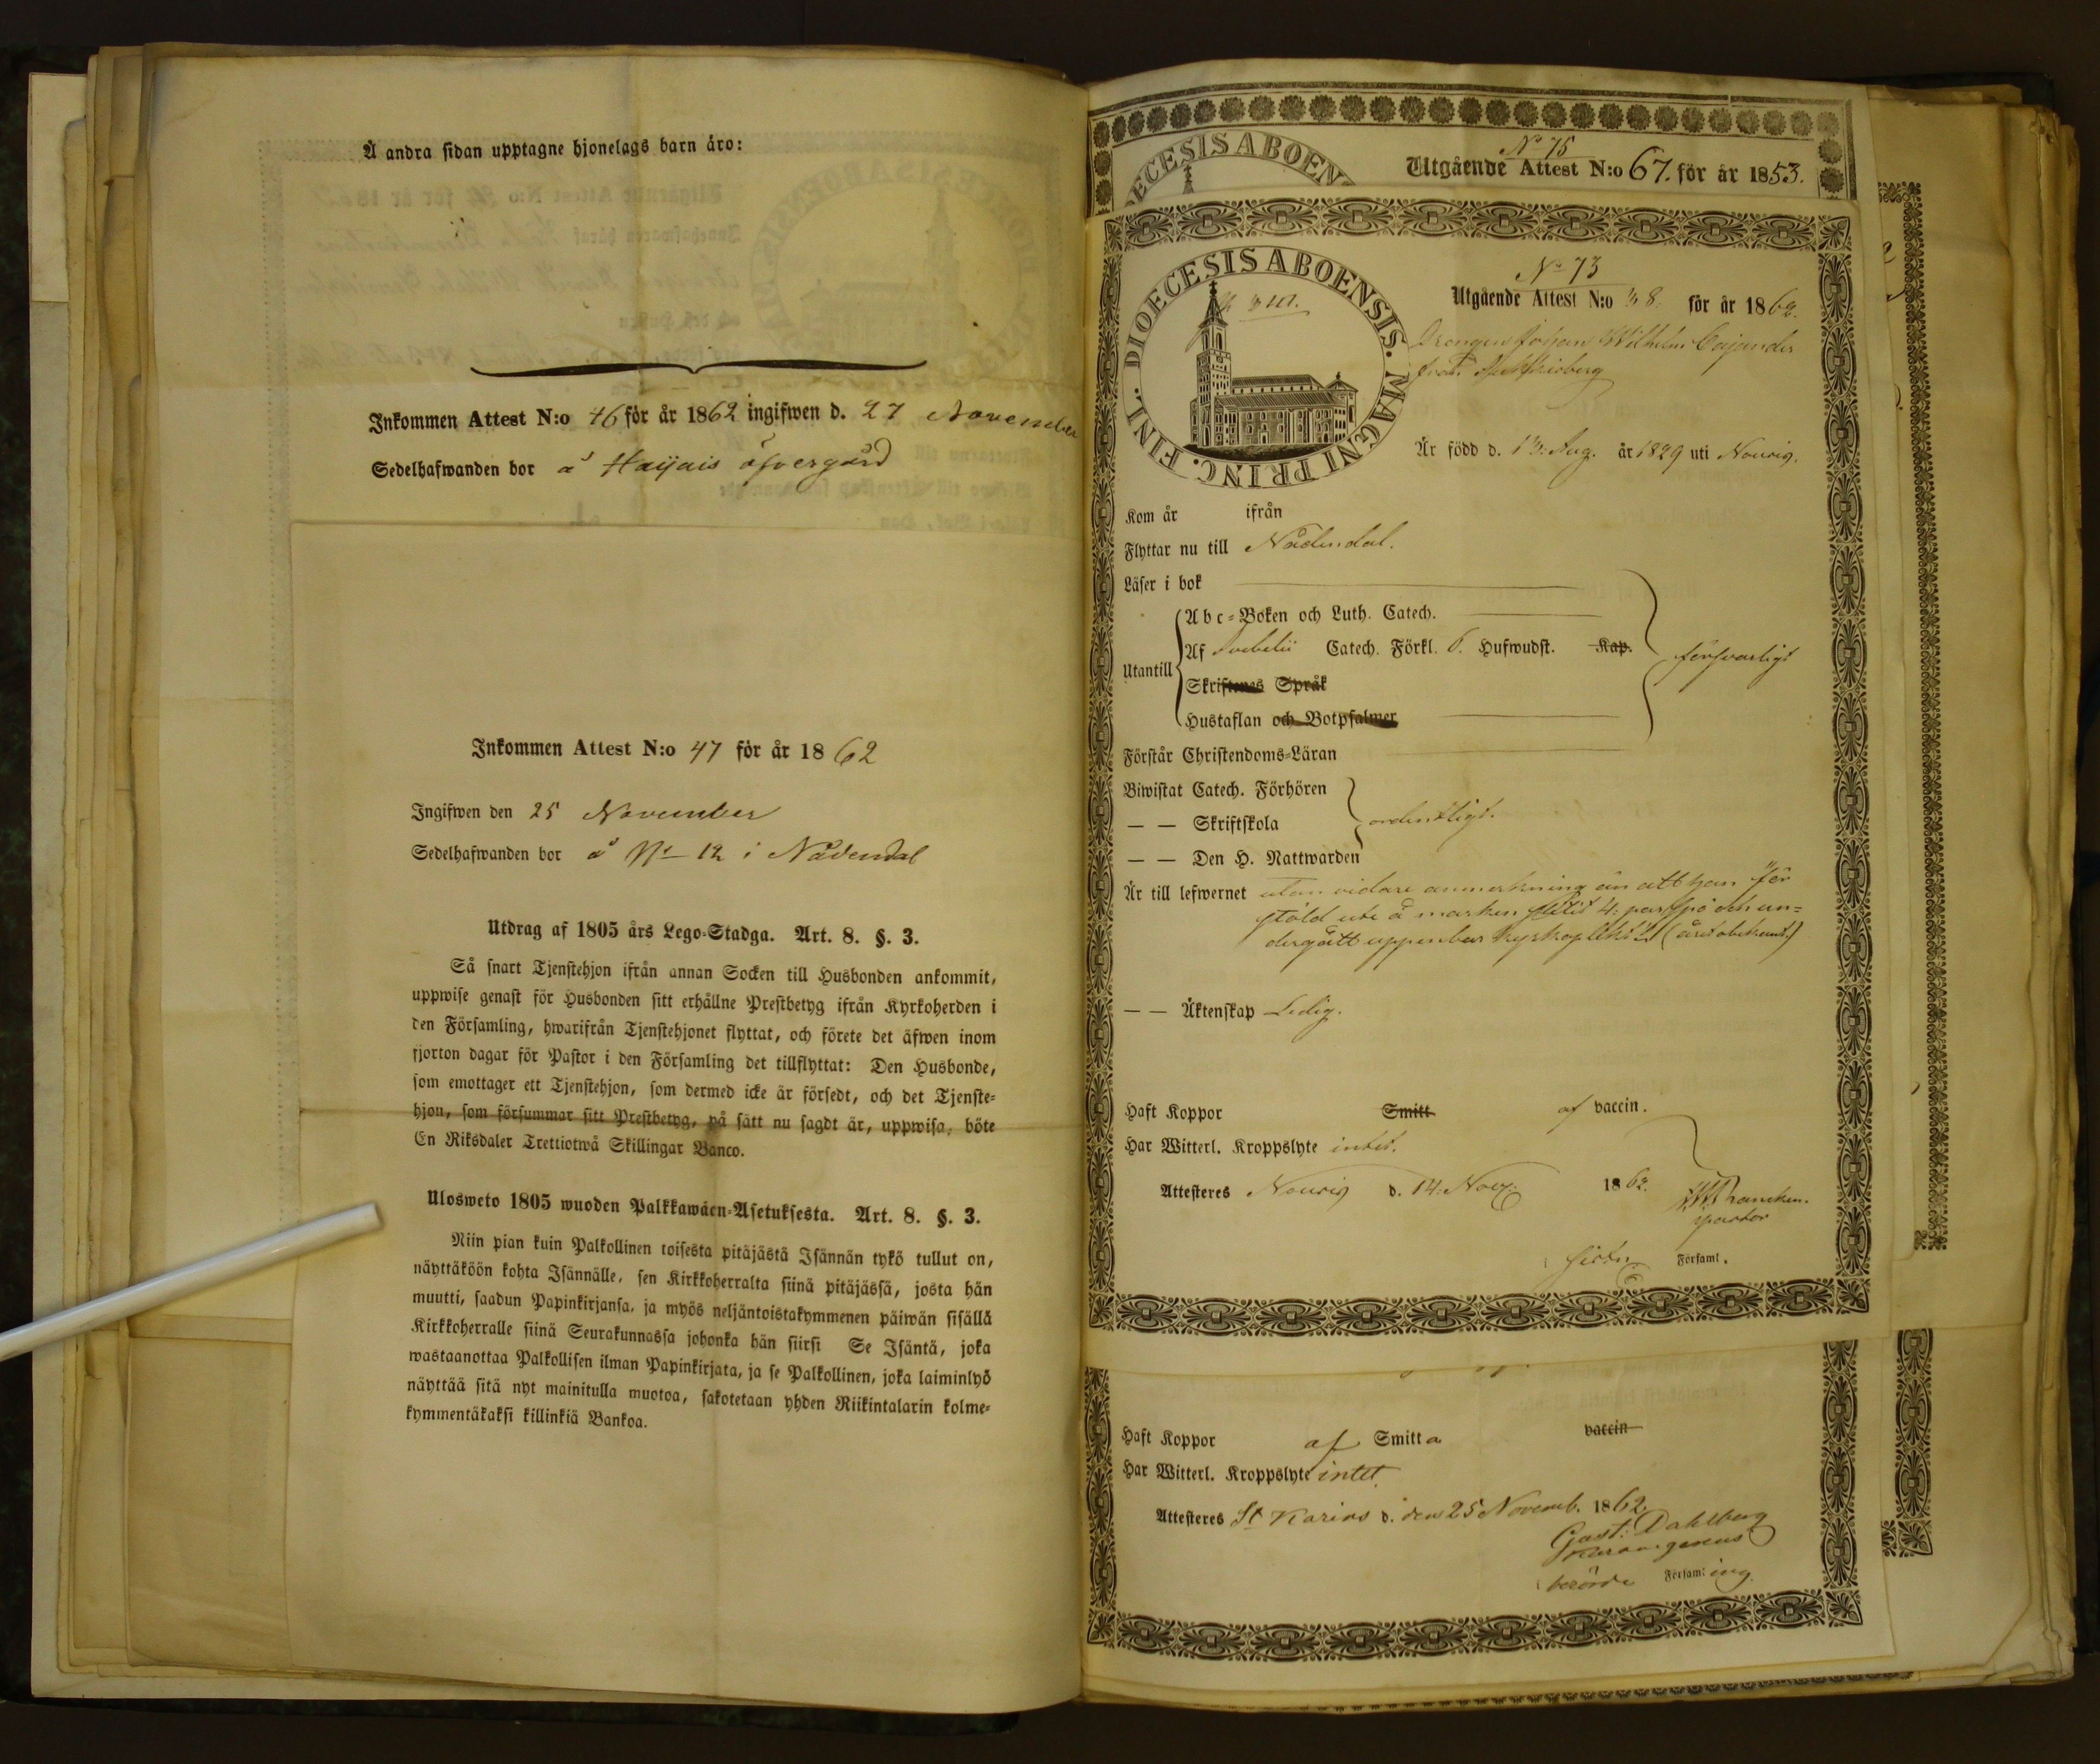 Å andra sidan upptagne hjonelags barn äro:
Inkommen Attest N:o 46 för år 1862 ingifwen d. 27 November
Sedelhafwanden bor å Haijais öfvergård
Inkommen Attest N:o 47 för år 1862
Ingifwen den 25 November
Sedelhafwanden bor å No 12 i Nådendal
Utdrag af 1805 års Lego-Stadga. Art. 8. §. 3.
Så snart Tjenstehjon ifrån annan Socken till Husbonden ankommit,
uppwise genast för Husbonden sitt erhållne Prestbetyg ifrån Kyrkoherden i
den Församling, hwarifrån Tjenstehjonet flyttat, och förete det äfwen inom
fjorton dagar för Pastor i den Församling det tillflyttat: Den Husbonde,
som emottager ett Tjenstehjon, som dermed icke är försedt, och det Tjenste-
hjon, som försummar sitt Prestbetyg, på sätt nu sagdt är, uppwisa, böte
En Riksdaler Trettiotwå Skillingar Banco.
Ulosweto 1805 wuoden Palkkawäen-Asetuksesta. Art. 8. §. 3.
Niin pian kuin Palkollinen toisesta pitäjästä Isännän tykö tullut on,
näyttäköön kohta Isännälle, sen Kirkkoherralta siinä pitäjässä, josta hän
muutti, saadun Papinkirjansa, ja myös neljäntoistakymmenen päiwän sisällä
Kirkkoherralle siinä Seurakunnassa johonka hän siirsi Se Isäntä, joka
wastaanottaa Palkollisen ilman Papinkirjata, ja se Palkollinen, joka laiminlyö
näyttää sitä nyt mainitulla muotoa, sakotetaan yhden Riikintalarin kolme-
kymmentäkaksi killinkiä Bankoa.
No 75
DIOECESIS ABOEN
Utgående Attest N:o 67. för år 1853.
DIOECESIS ABOENSIS. MAGNI PRINC. FINL.
No 73
Utgående Attest N:o 8. för år 1862.
Drengen Johan Wilhelm Cajander
från
Är född d. 13. Aug. år 1829 uti Nousis.
Kom år ifrån
Flyttar nu till Nådendal.
Läser i bok
Utantill
Abc-Boken och Luth. Catech.
Af Svebelii Catech. Förkl. 6. Hufwudst. Kap.
försvarligt
Skriftenes Språk
Hustaflan och Botpsalmer
Förstår Christendoms-Läran
Biwistat Catech. Förhören
— — Skriftskola ordentligt.
— — Den H. Nattwarden
Är till lefwernet utan vidare anmerkning än att han för
stöld ute å marken slitit 4: par spö och un=
dergått uppenbar kyrkoplikt (året obekant.)
— — Äktenskap Ledig.
Haft Koppor Smitt af vaccin.
Har Witterl. Kroppslyte intet.
Attesteres Nousis d. 14. Nov. 1862.
pastor
Församl.
Haft Koppor af Smitta vaccin
Har Witterl. Kroppslyte intet
Attesteres St Karins d. den 25 Novemb. 1862.
Gust: Dahlberg
berörde Församling